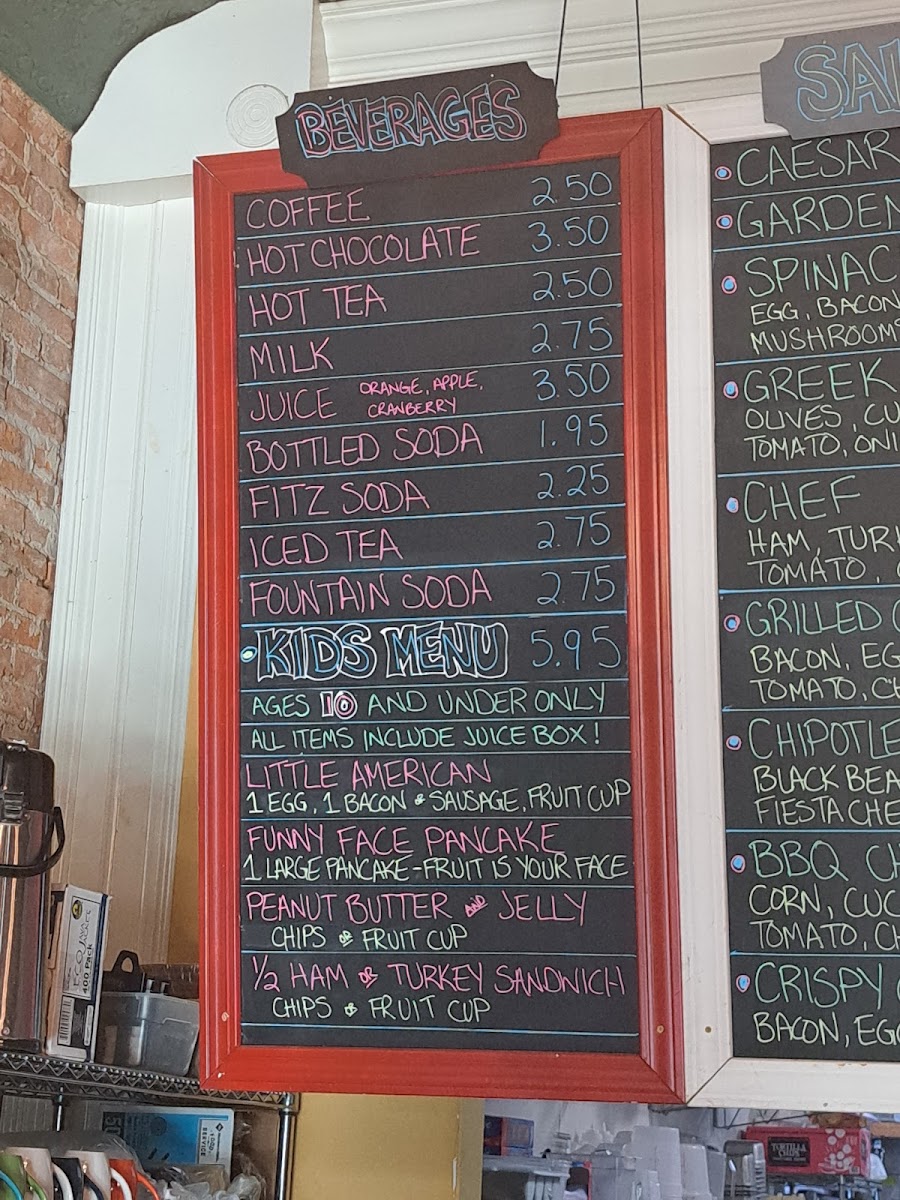 BEVERAGES
COFFEE 2.50
HOT CHOCOLATE 3.50
HOT TEA 2.50
MILK 2.75
JUICE ORANGE, APPLE, CRANBERRY 3.50
BOTTLED SODA 1.95
FITZ SODA 2.25
ICED TEA 2.75
FOUNTAIN SODA 2.75
KIDS MENU 5.95
AGES 10 AND UNDER ONLY
ALL ITEMS INCLUDE JUICE BOX!
LITTLE AMERICAN
1 EGG, 1 BACON OR SAUSAGE, FRUIT CUP
FUNNY FACE PANCAKE
1 LARGE PANCAKE - FRUIT IS YOUR FACE
PEANUT BUTTER AND JELLY
CHIPS OR FRUIT CUP
1/2 HAM OR TURKEY SANDWICH
CHIPS OR FRUIT CUP
CAESAR
GARDEN
EGG, BACON
MUSHROOMS
GREEK
OLIVES,
TOMATO,
CHEF
HAM,
TOMATO,
GRILLED
BACON,
TOMATO,
CHIPOTLE
BLACK
FIESTA
BBQ
CORN,
TOMATO,
CRISPY
BACON,
400 Pack
TORTILLA
CHIPS